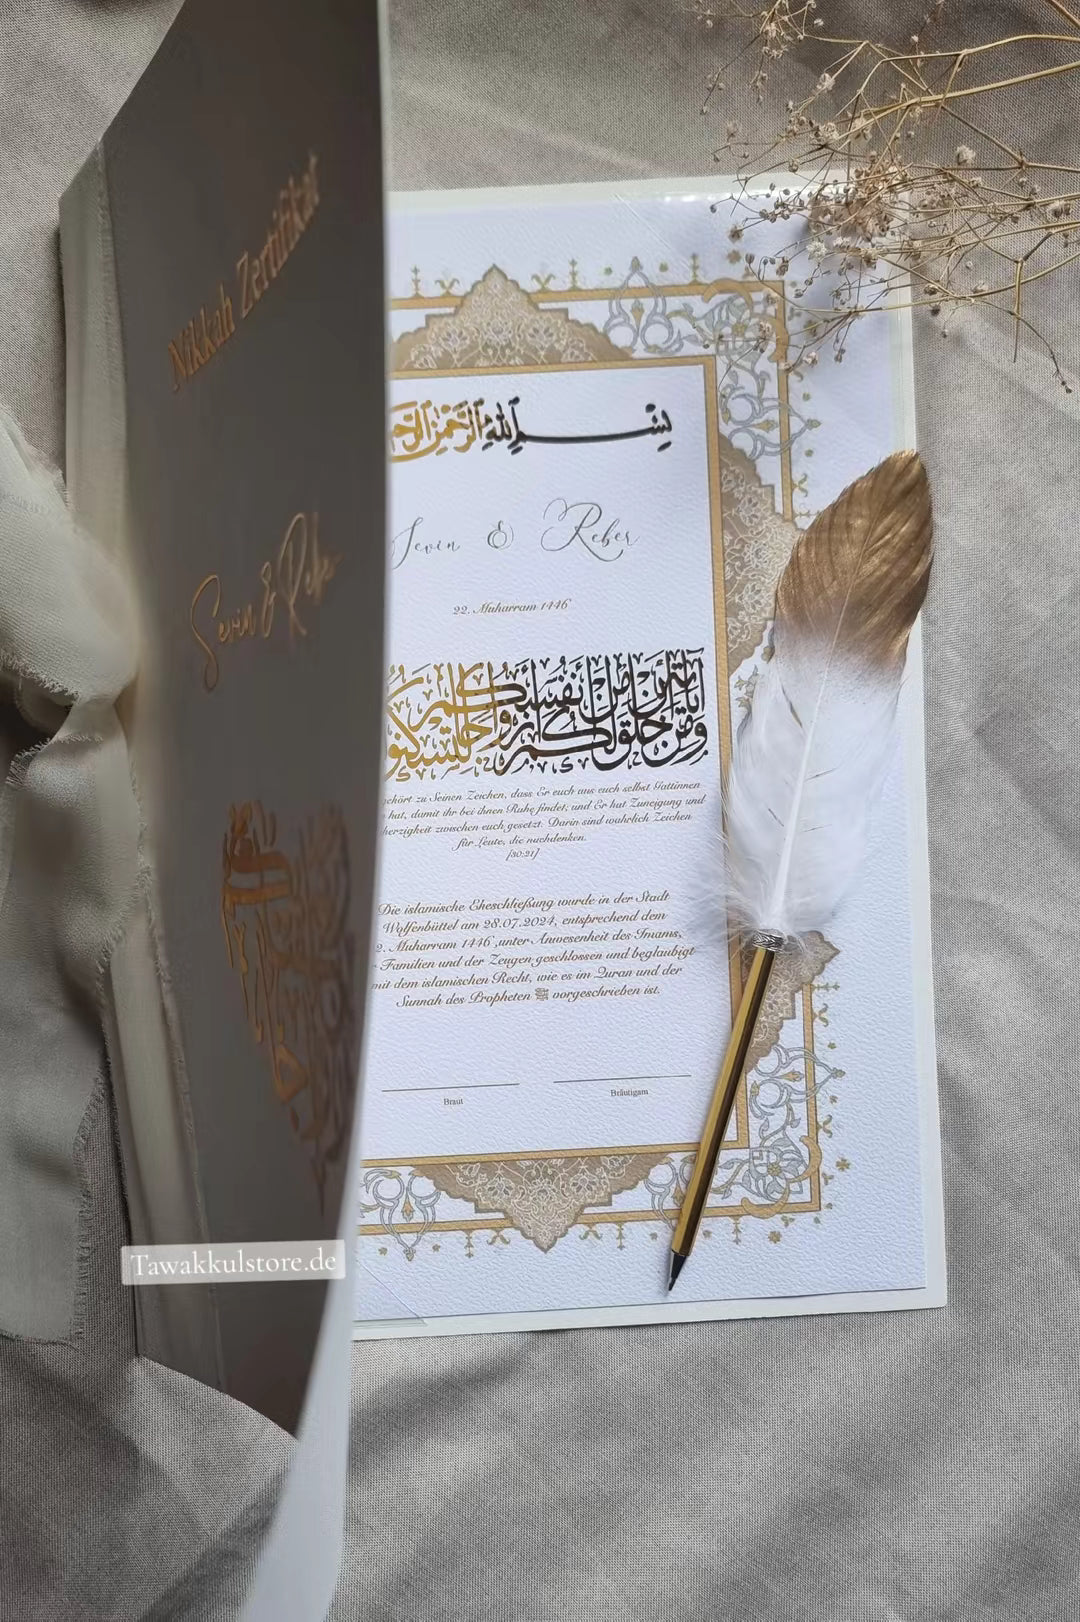 Nikkah Zertifikat
Sevin & Reber
بِسْمِ اللهِ الرَّحْمٰنِ
Sevin & Reber
22. Muharram 1446
وَمِنْ آيَاتِهِ أَنْ خَلَقَ لَكُم مِّنْ أَنفُسِكُمْ أَزْوَاجًا لِّتَسْكُنُوا
zu Seinen Zeichen, dass Er euch aus euch selbst Gattinnen
hat, damit ihr bei ihnen Ruhe findet; und Er hat Zuneigung und
zwischen euch gesetzt. Darin sind wahrlich Zeichen
für Leute, die nachdenken.
[30:21]
Die islamische Eheschließung wurde in der Stadt
Wolfenbüttel am 28.07.2024, entsprechend dem
2. Muharram 1446 ,unter Anwesenheit des Imams,
Familien und der Zeugen geschlossen und beglaubigt
mit dem islamischen Recht, wie es im Quran und der
Sunnah des Propheten ﷺ vorgeschrieben ist.
Braut Bräutigam
Tawakkulstore.de